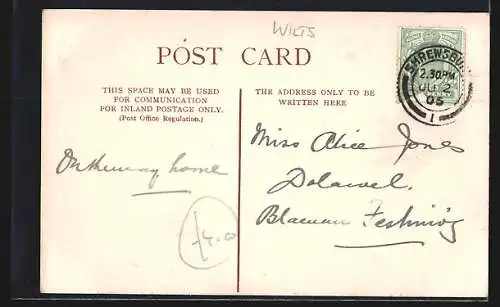 WILTS
POST CARD
THIS SPACE MAY BE USED
FOR COMMUNICATION
FOR INLAND POSTAGE ONLY.
(Post Office Regulation.)
THE ADDRESS ONLY TO BE
WRITTEN HERE
SHREWSBURY
2.30PM
05
1
On the way home
Miss Alice Jones
Dolawel.
Blaenau Festiniog